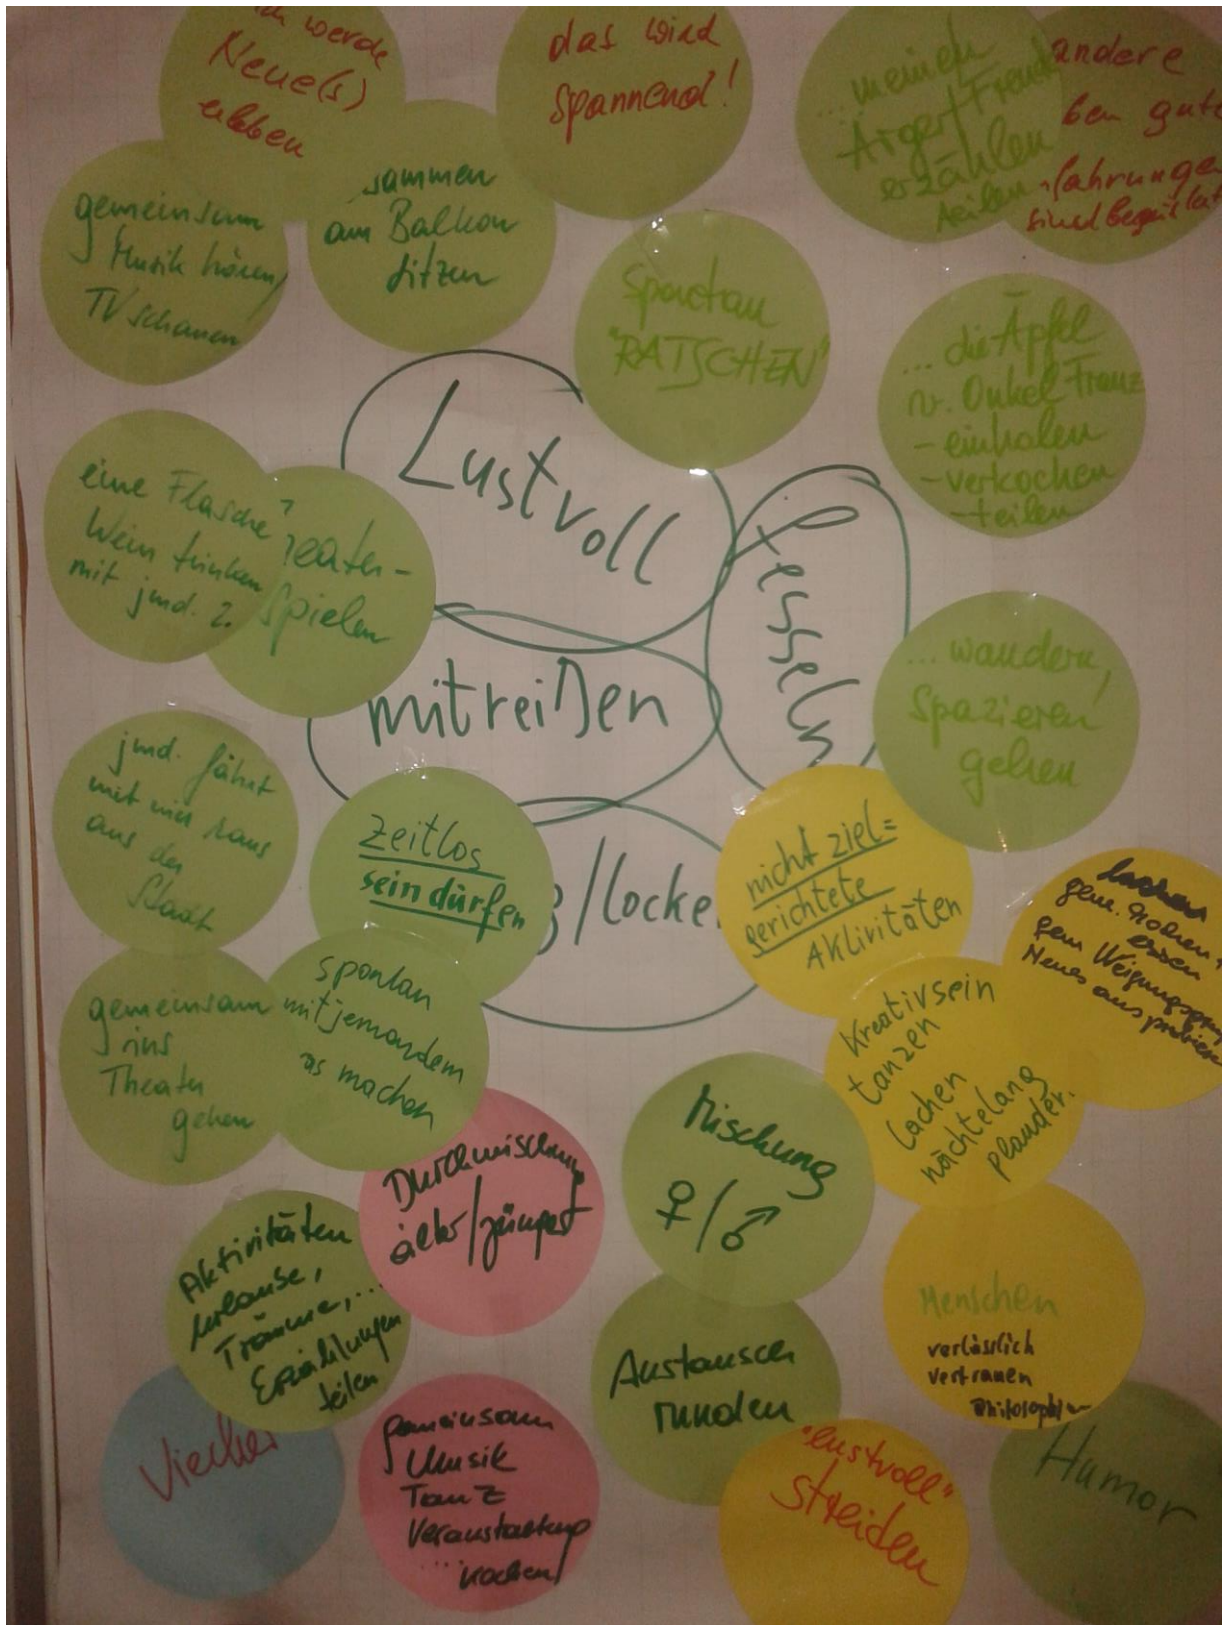 werde
Neue(s)
erleben
das wird
spannend!
...meinen
Ärger/Freude
erzählen
teilen
andere
ben gute
fahrungen
sind begeistert
gemeinsam
Musik hören/
TV schauen
sammen
am Balkon
sitzen
Spontan
"RATSCHEN"
...die Äpfel
v. Onkel Franz
- einholen
- verkochen
- teilen
Lustvoll
fesseln
mitreißen
/locker
eine Flasche
Wein trinken
mit jmd. 2.
eater-
spielen
...wandern,
spazieren
gehen
jmd. fährt
mit mir raus
aus der
Stadt
zeitlos
sein dürfen
nicht ziel=
gerichtete
Aktivitäten
gem. kochen +
essen
gem
Neues ausprobieren
gemeinsam
ins
Theater
gehen
spontan
mit jemandem
as machen
Kreativsein
tanzen
lachen
nächtelang
plauder.
Durchmischung
älter/jünger
Mischung
♀/♂
Aktivitäten
Urlaube,
Träume,...
Erzählungen
teilen
Menschen
verlässlich
vertrauen
Austausch
runden
Viecher
gemeinsam
Musik
Tanz
Veranstaltung
...kochen/
"lustvoll"
streiden
Humor